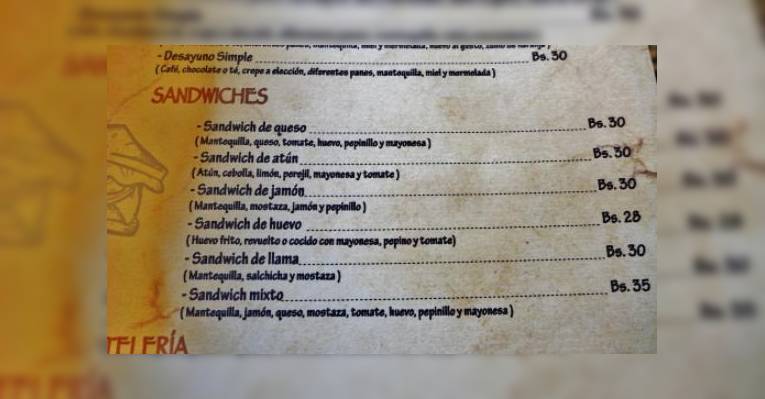 - Desayuno Simple Bs. 30
( Café, chocolate o té, crepe a elección, diferentes panes, mantequilla, miel y mermelada )
SANDWICHES
- Sandwich de queso Bs. 30
( Mantequilla, queso, tomate, huevo, pepinillo y mayonesa )
- Sandwich de atún Bs. 30
( Atún, cebolla, limón, perejil, mayonesa y tomate )
- Sandwich de jamón Bs. 30
( Mantequilla, mostaza, jamón y pepinillo )
- Sandwich de huevo Bs. 28
( Huevo frito, revuelto o cocido con mayonesa, pepino y tomate)
- Sandwich de llama Bs. 30
( Mantequilla, salchicha y mostaza )
- Sandwich mixto Bs. 35
( Mantequilla, jamón, queso, mostaza, tomate, huevo, pepinillo y mayonesa )
TELERÍA